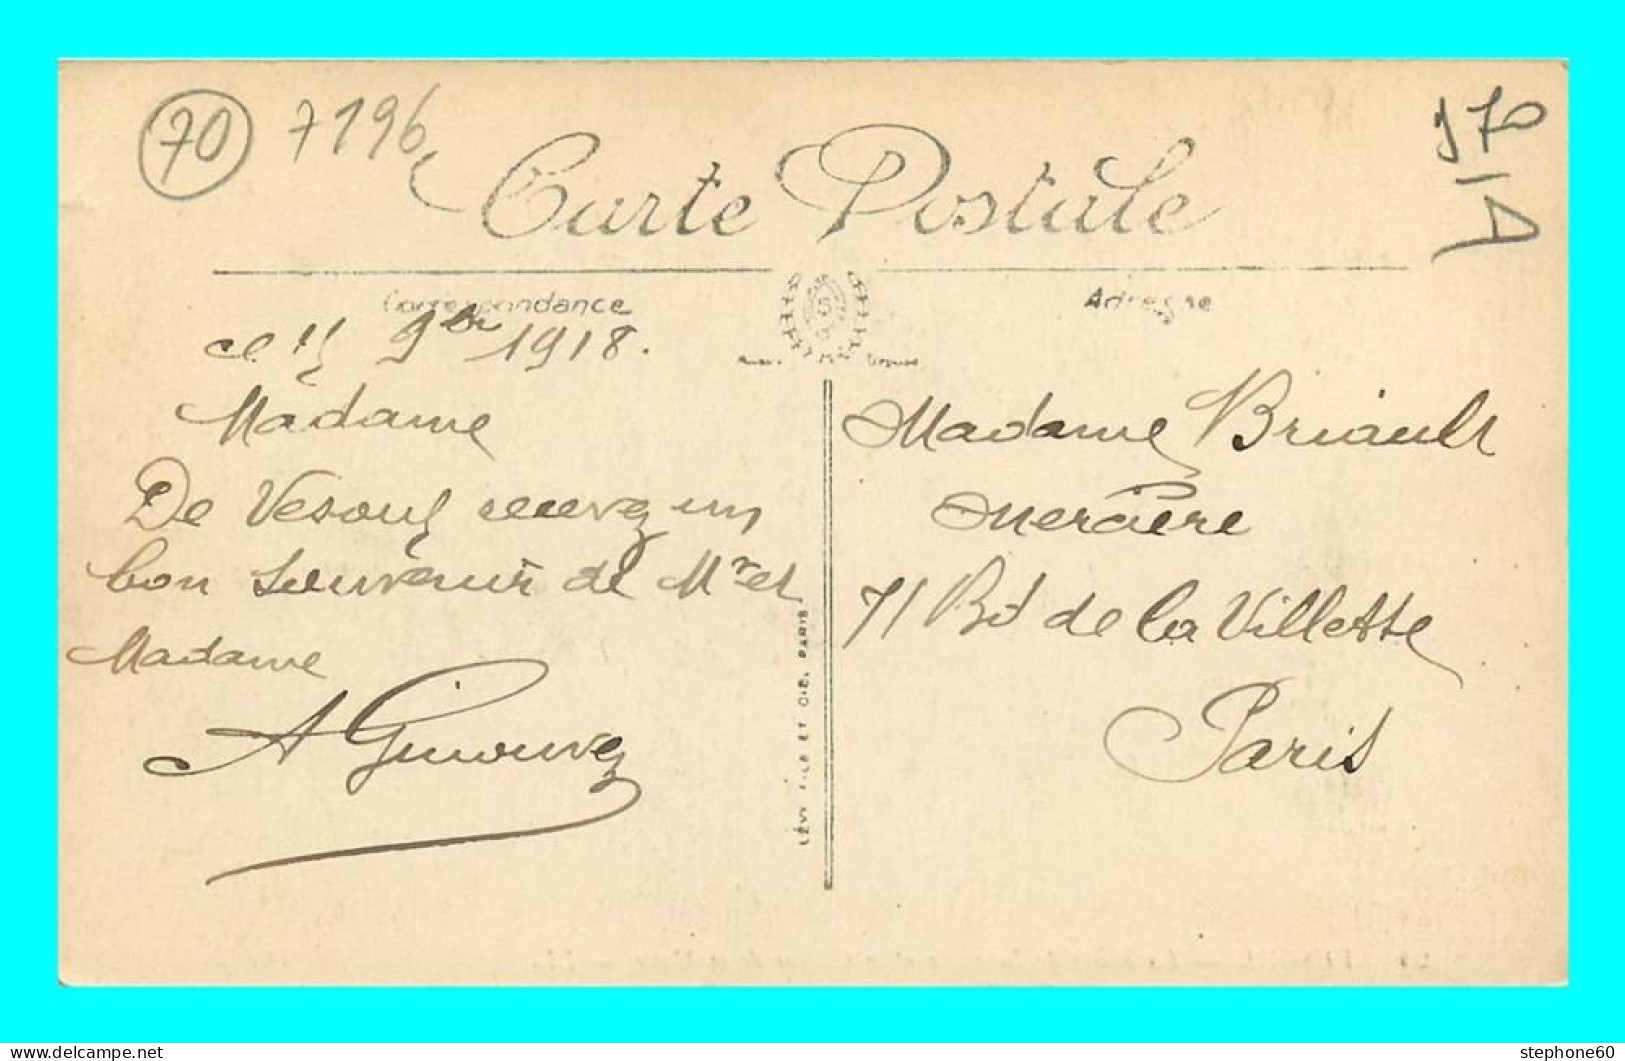 70
7196
970
Carte Postale
Correspondance
Adresse
ce 9bre 1918.
Madame
De Vesoul recevez un
bon souvenir de Mr et
Madame
A Ginouvez
Madame Briault
Mercière
71 Bd de la Villette
Paris
LÉVY FILS ET CIE, PARIS
stephone60